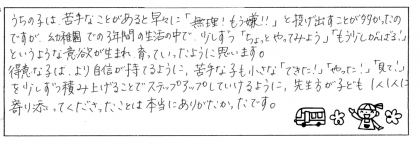 うちの子は、苦手なことがあると早々に「無理!もう嫌!!」と投げ出すことが多かったの
ですが、幼稚園での3年間の生活の中で、少しずつ「ちょっとやってみよう」「もう少しがんばる!」
というような意欲が生まれ、育っていったように思います。
得意な子は、より自信が持てるように、苦手な子も小さな「できた!」「やった!」「見て!」
を少しずつ積み上げることでステップアップしていけるように、先生方が子ども1人1人に
寄り添ってくださったことは本当にありがたかったです。